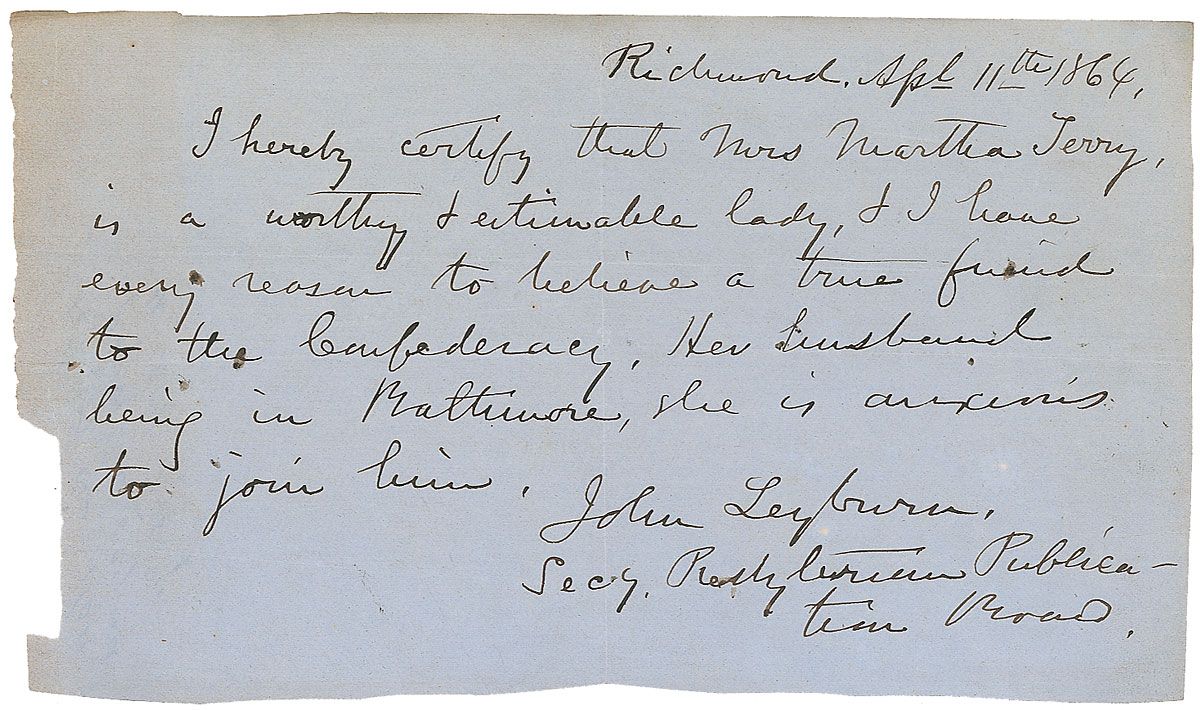 Richmond. Apl 11th 1864,
I hereby certify that Mrs Martha Terry,
is a worthy & estimable lady, & I have
every reason to believe a true friend
to the Confederacy. Her husband
being in Baltimore, she is anxious
to join him.
John Leyburn.
Secy. Presbyterian Publica-
tion Board.